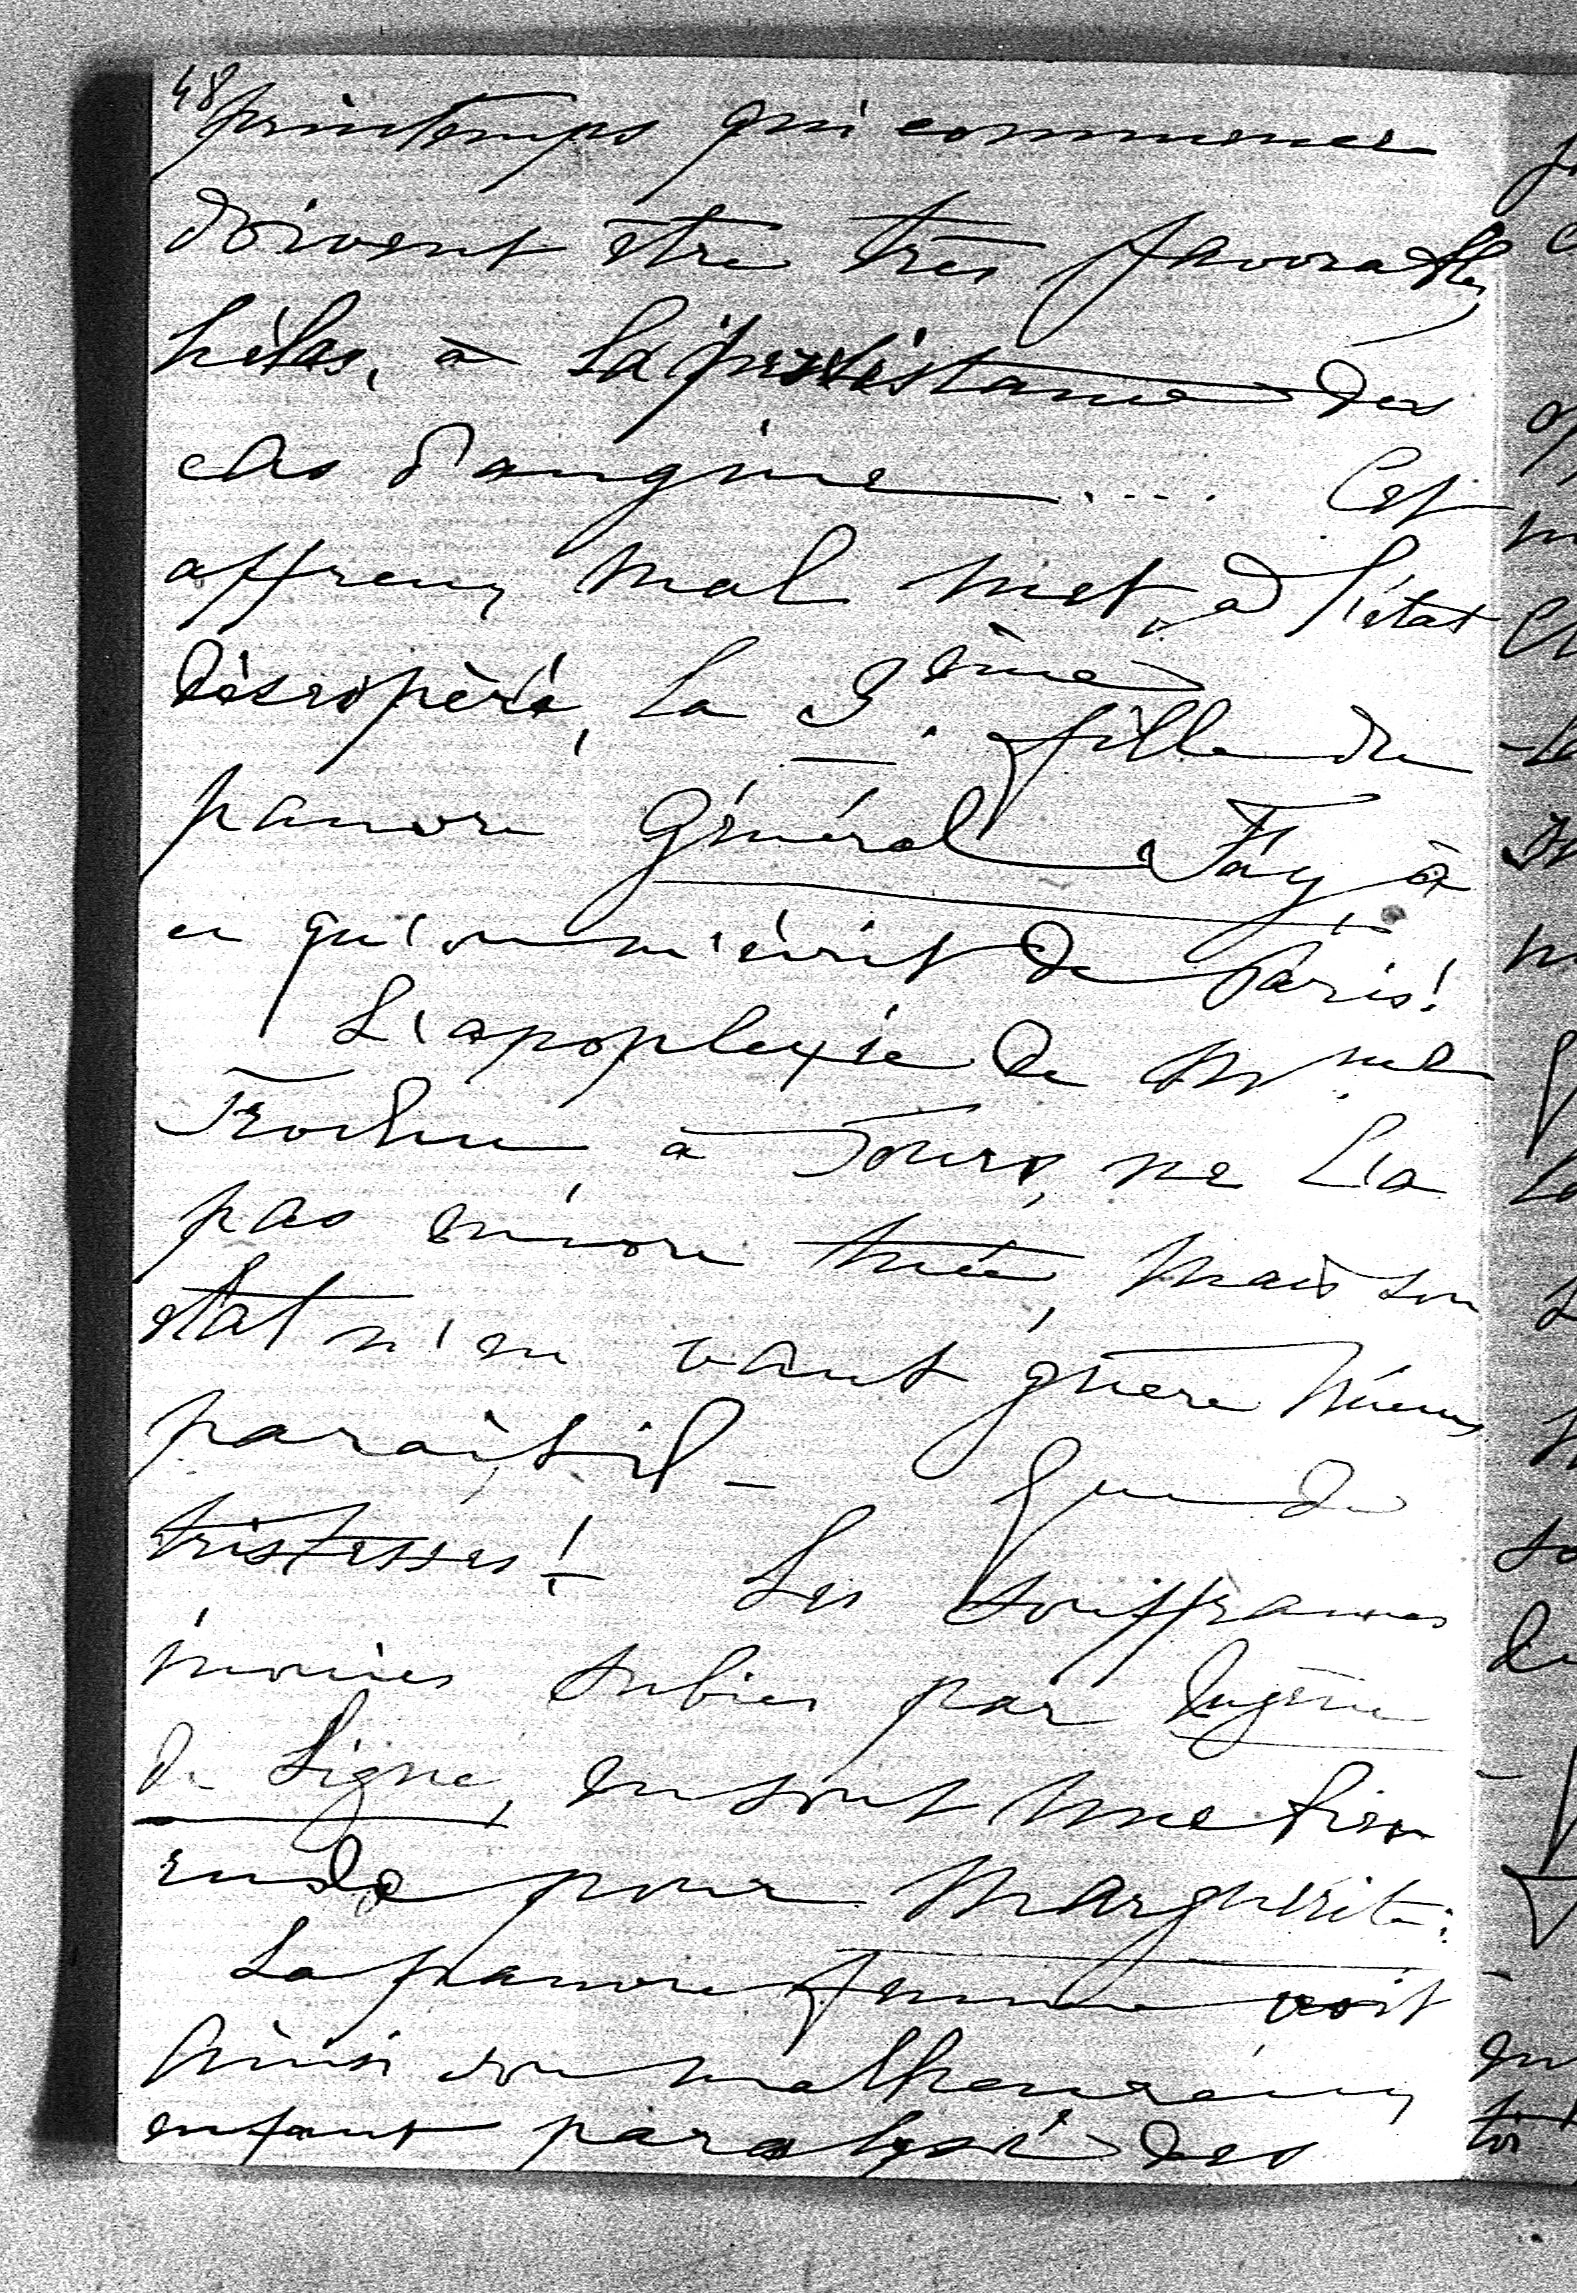 48
printemps qui commence
doivent être très favorables,
hélas, à la persistance des
cas d'angine .... Cet
affreux mal met, à l'état
désespéré, la 3ème fille du
pauvre Général Fay, à
ce qu'on m'écrit de Paris!
L'apoplexie de Mme
Trochu, à Tours, ne l'a
pas encore tuée, mais son
état n'en vaut guère mieux
paraît-il – Que de
tristesses! – Les souffrances
inouïes subies par Eugène
de Ligne, en sont une bien
rude pour Marguerite:
La pauvre femme voit
ainsi son malheureux
enfant paralysé des